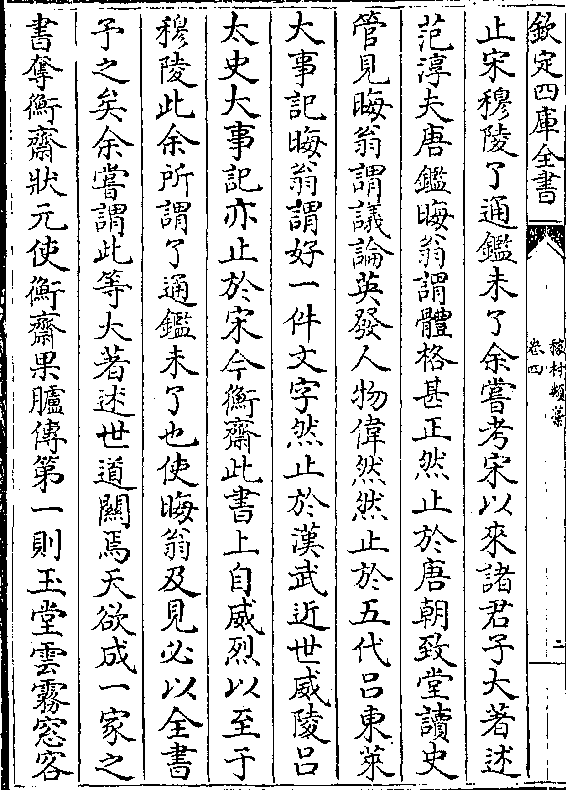 欽定四庫全書
稼村類藁
卷四
二
止宋穆陵了通鑑未了余嘗考宋以來諸君子大著述
范淳夫唐鑑晦翁謂體格甚正然止於唐朝致堂讀史
管見晦翁謂議論英發人物偉然然止於五代吕東萊
大事記晦翁謂好一件文字然止於漢武近世威陵吕
太史大事記亦止於宋今衡齋此書上自威烈以至于
穆陵此余所謂了通鑑未了也使晦翁及見必以全書
予之矣余嘗謂此等大著述世道闗焉天欲成一家之
書奪衡齋狀元使衡齋果臚傳第一則玉堂雲霧窓客